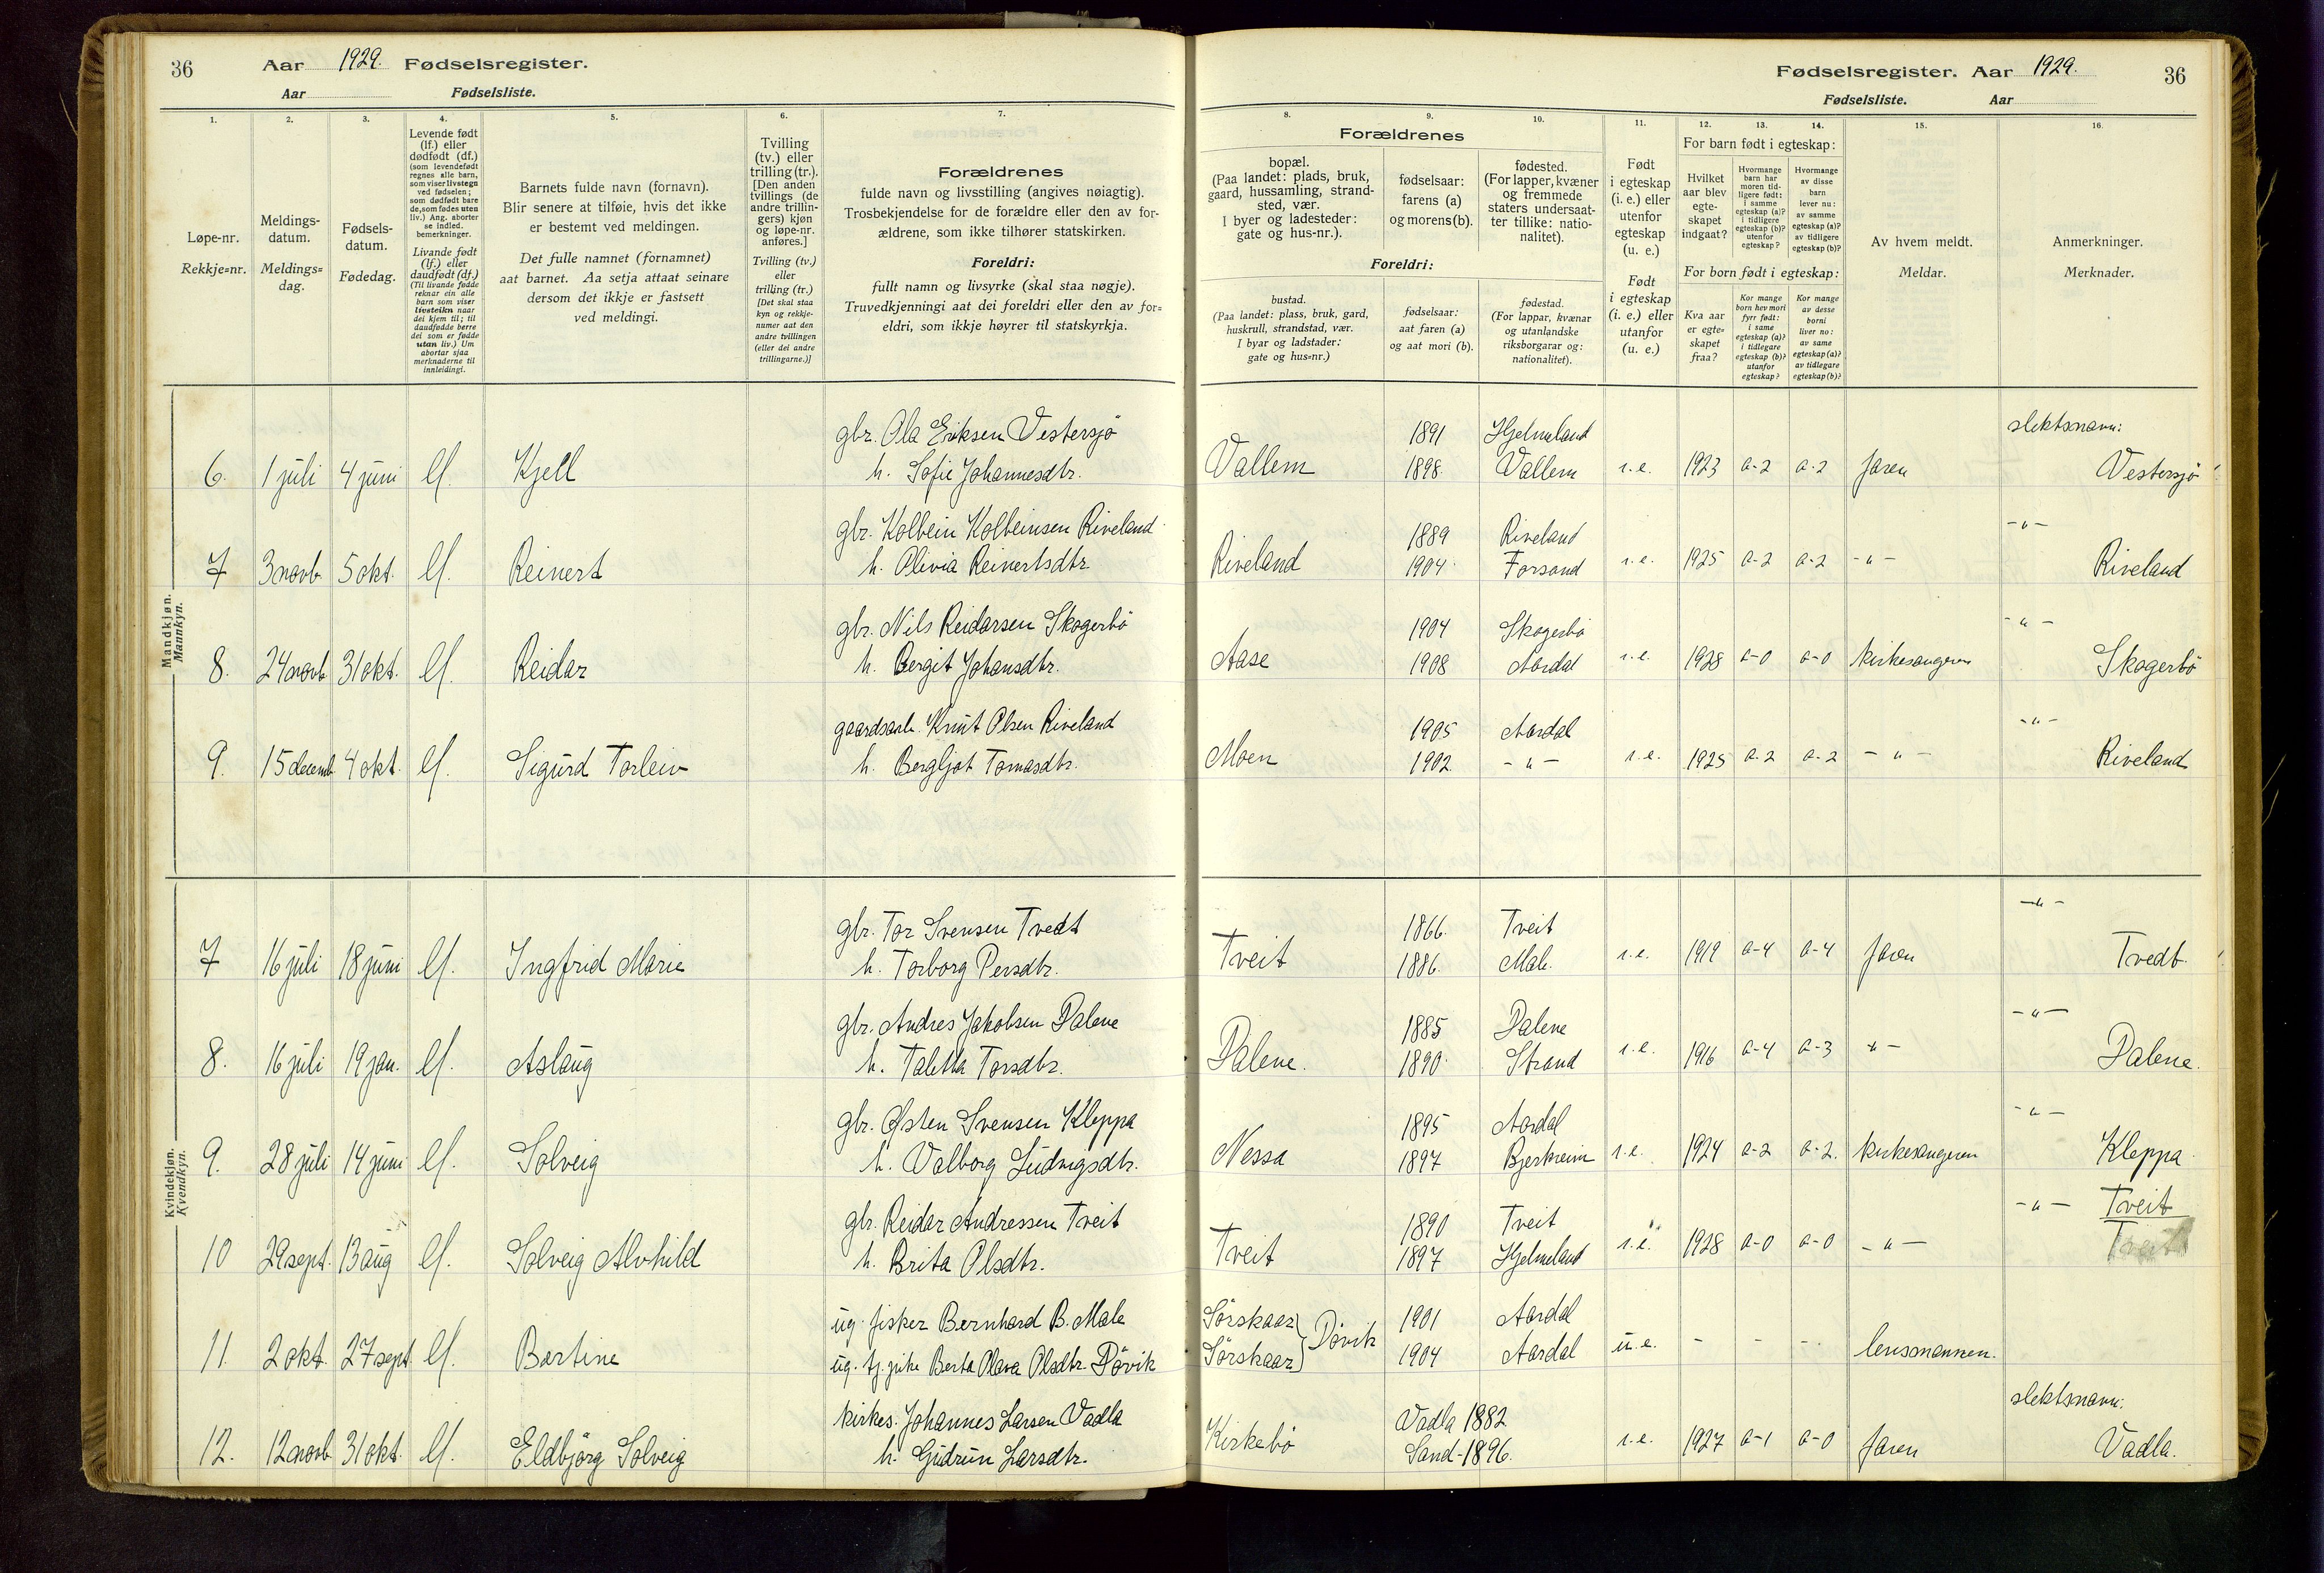 36 Aar 1929. Fødselsregister.
Aar Fødselsliste.
Fødselsregister. Aar 1929. 36
Fødselsliste. Aar
1. 2. 3. 4. 5. 6. 7.
Løpe-nr.
Rekkje=nr.
Meldings-
datum.
Meldings=
dag.
Fødsels-
datum.
Fødedag.
Levende født
(lf.) eller
dødfødt (df.)
(som levendefødt
regnes alle barn,
som viser livstegn
ved fødselen;
som dødfødt bare
de, som fødes uten
liv.) Ang. aborter
se indled.
bemerkninger.
Livande født
(lf.) eller
daudfødt (df.)
(Til livande fødde
reknar ein alle
barn som viser
livsteikn naar
dei kjem til; til
daudfødde berre
dei som er fødde
utan liv.) Um
abortar sjaa
merknaderne til
innleidingi.
Barnets fulde navn (fornavn).
Blir senere at tilføie, hvis det ikke
er bestemt ved meldingen.
Det fulle namnet (fornamnet)
aat barnet. Aa setja attaat seinare
dersom det ikkje er fastsett
ved meldingi.
Tvilling
(tv.) eller
trilling (tr.).
[Den anden
tvillings (de
andre trillin-
gers) kjøn
og løpe-nr.
anføres.]
Tvilling (tv.)
eller
trilling (tr.)
[Det skal staa
kyn og rekkje-
numer aat den
andre tvillingen
(eller dei andre
trillingarne.)]
Forældrenes
fulde navn og livsstilling (angives nøiagtig).
Trosbekjendelse for de forældre eller den av for-
ældrene, som ikke tilhører statskirken.
Foreldri:
fullt namn og livsyrke (skal staa nøgje).
Truvedkjenningi aat dei foreldri eller den av for=
eldri, som ikkje høyrer til statskyrkja.
8. 9. 10. 11. 12. 13. 14. 15. 16.
Forældrenes
bopæl.
(Paa landet: plads, bruk,
gaard, hussamling, strand-
sted, vær.
I byer og ladesteder:
gate og hus-nr.).
fødselsaar:
farens (a)
og morens (b).
fødested.
(For lapper, kvæner
og fremmede
staters undersaat-
ter tillike: natio-
nalitet).
Foreldri:
bustad.
(Paa landet: plass, bruk, gard,
huskrull, strandstad, vær.
I byar og ladstader:
gate og hus=nr.)
fødselsaar:
aat faren (a)
og aat mori (b).
fødestad.
(For lappar, kvænar
og utanlandske
riksborgarar og:
nationalitet).
Født
i egteskap
(i. e.) eller
utenfor
egteskap
(u. e.)
Født
i egteskap
(i. e.) eller
utanfor
(u. e.)
For barn født i egteskap:
Hvilket
aar blev
egte-
skapet
indgaat?
Hvormange
barn har
moren tid-
ligere født:
i samme
egteskap (a)?
i tidligere
egteskap (b)?
utenfor
egteskap?
Hvormange
av disse
barn
lever nu:
av samme
egteskap (a)?
av tidligere
egteskap (b)?
For born født i egteskap:
Kva aar
er egte=
skapet
fraa?
Kor mange
born hev mori
fyrr født:
i same
egteskap (a)?
i tidlegare
egteskap (b)?
utanfor
egteskap?
Kor mange
av desse
borni
liver no:
av same
egteskap (a)?
av tidlegare
egteskap (b)?
Av hvem meldt.
Meldar.
Anmerkninger.
Merknader.
Mandkjøn.
Mannkyn.
gbr. Ola Eriksen Vestersjö 1891 Hjelmeland slektsnavn:
6. 1 juli 4 juni lf. Kjell h. Sofie Johannesdtr. Vallem 1898. Vallem i.e. 1923 a-2 a-2 faren Vestersjö
gbr. Kolbein Kolbeinsen Riveland 1889 Riveland -"-
7 3 novb. 5 okt. lf. Reinert h. Olivia Reinertsdtr. Riveland 1904 Forsand i.e. 1925 a-2 a-2 -"- Riveland
gbr. Nils Reidarsen Skogerbö 1904 Skogerbö -"-
8. 24 novb. 31 okt. lf. Reidar h. Bergit Johansdtr. Aase 1908 Aardal i.e. 1928 a-0 a-0 kirkesangeren Skogerbö
gaardsarb. Knut Olsen Riveland 1905 Aardal -"-
9. 15 decemb. 4 okt. lf. Sigurd Torleiv h. Bergljot Tomasdtr. Moen 1902. -"- i.e. 1925 a-2 a-2 -"- Riveland
Kvindekjøn.
Kvendkyn.
gbr. Tor Svensen Tvedt 1866. Tveit -"-
7 16 juli 18 juni lf. Ingfrid Marie h. Torborg Persdtr. Tveit 1886. Male. i.e. 1919 a-4 a-4 faren Tvedt.
gbr. Andres Jakobsen Dalene 1885 Dalene -"-
8. 16 juli 19 jan. lf. Aslaug h. Taletta Torsdtr. Dalene. 1890. Strand i.e. 1916 a-4 a-3 -"- Dalene.
gbr. Østen Svensen Kleppa 1895 Aardal -"-
9. 28 juli 14 juni lf. Solveig h. Valborg Ludvigsdtr. Nessa 1897 Bjerkreim i.e. 1924 a-2 a-2. kirkesangeren Kleppa
gbr. Reidar Andressen Tveit 1890 Tveit -"- Tveit
10 29 sept. 13 aug lf. Solveig Alvhild h. Brita Olsdtr. Tveit 1897 Hjelmeland i.e. 1928 a-0 a-0 -"- Tveit
ug. fisker Bernhard B. Male Sörskaar 1901 Aardal
11. 2 okt. 27 sept lf. Bertine ug. tj.pike Berta Olava Olsdtr. Dövik Sörskaar } Dövik 1904 Aardal u.e. - - - lensmannen.
kirkes. Johannes Larsen Vadla Vadla 1882 slektsnavn:
12. 12 novb. 31 okt. lf. Eldbjörg Solveig h. Gudrun Larsdtr. Kirkebö Sand-1896. i.e. 1927 a-1 a-0 faren Vadla.